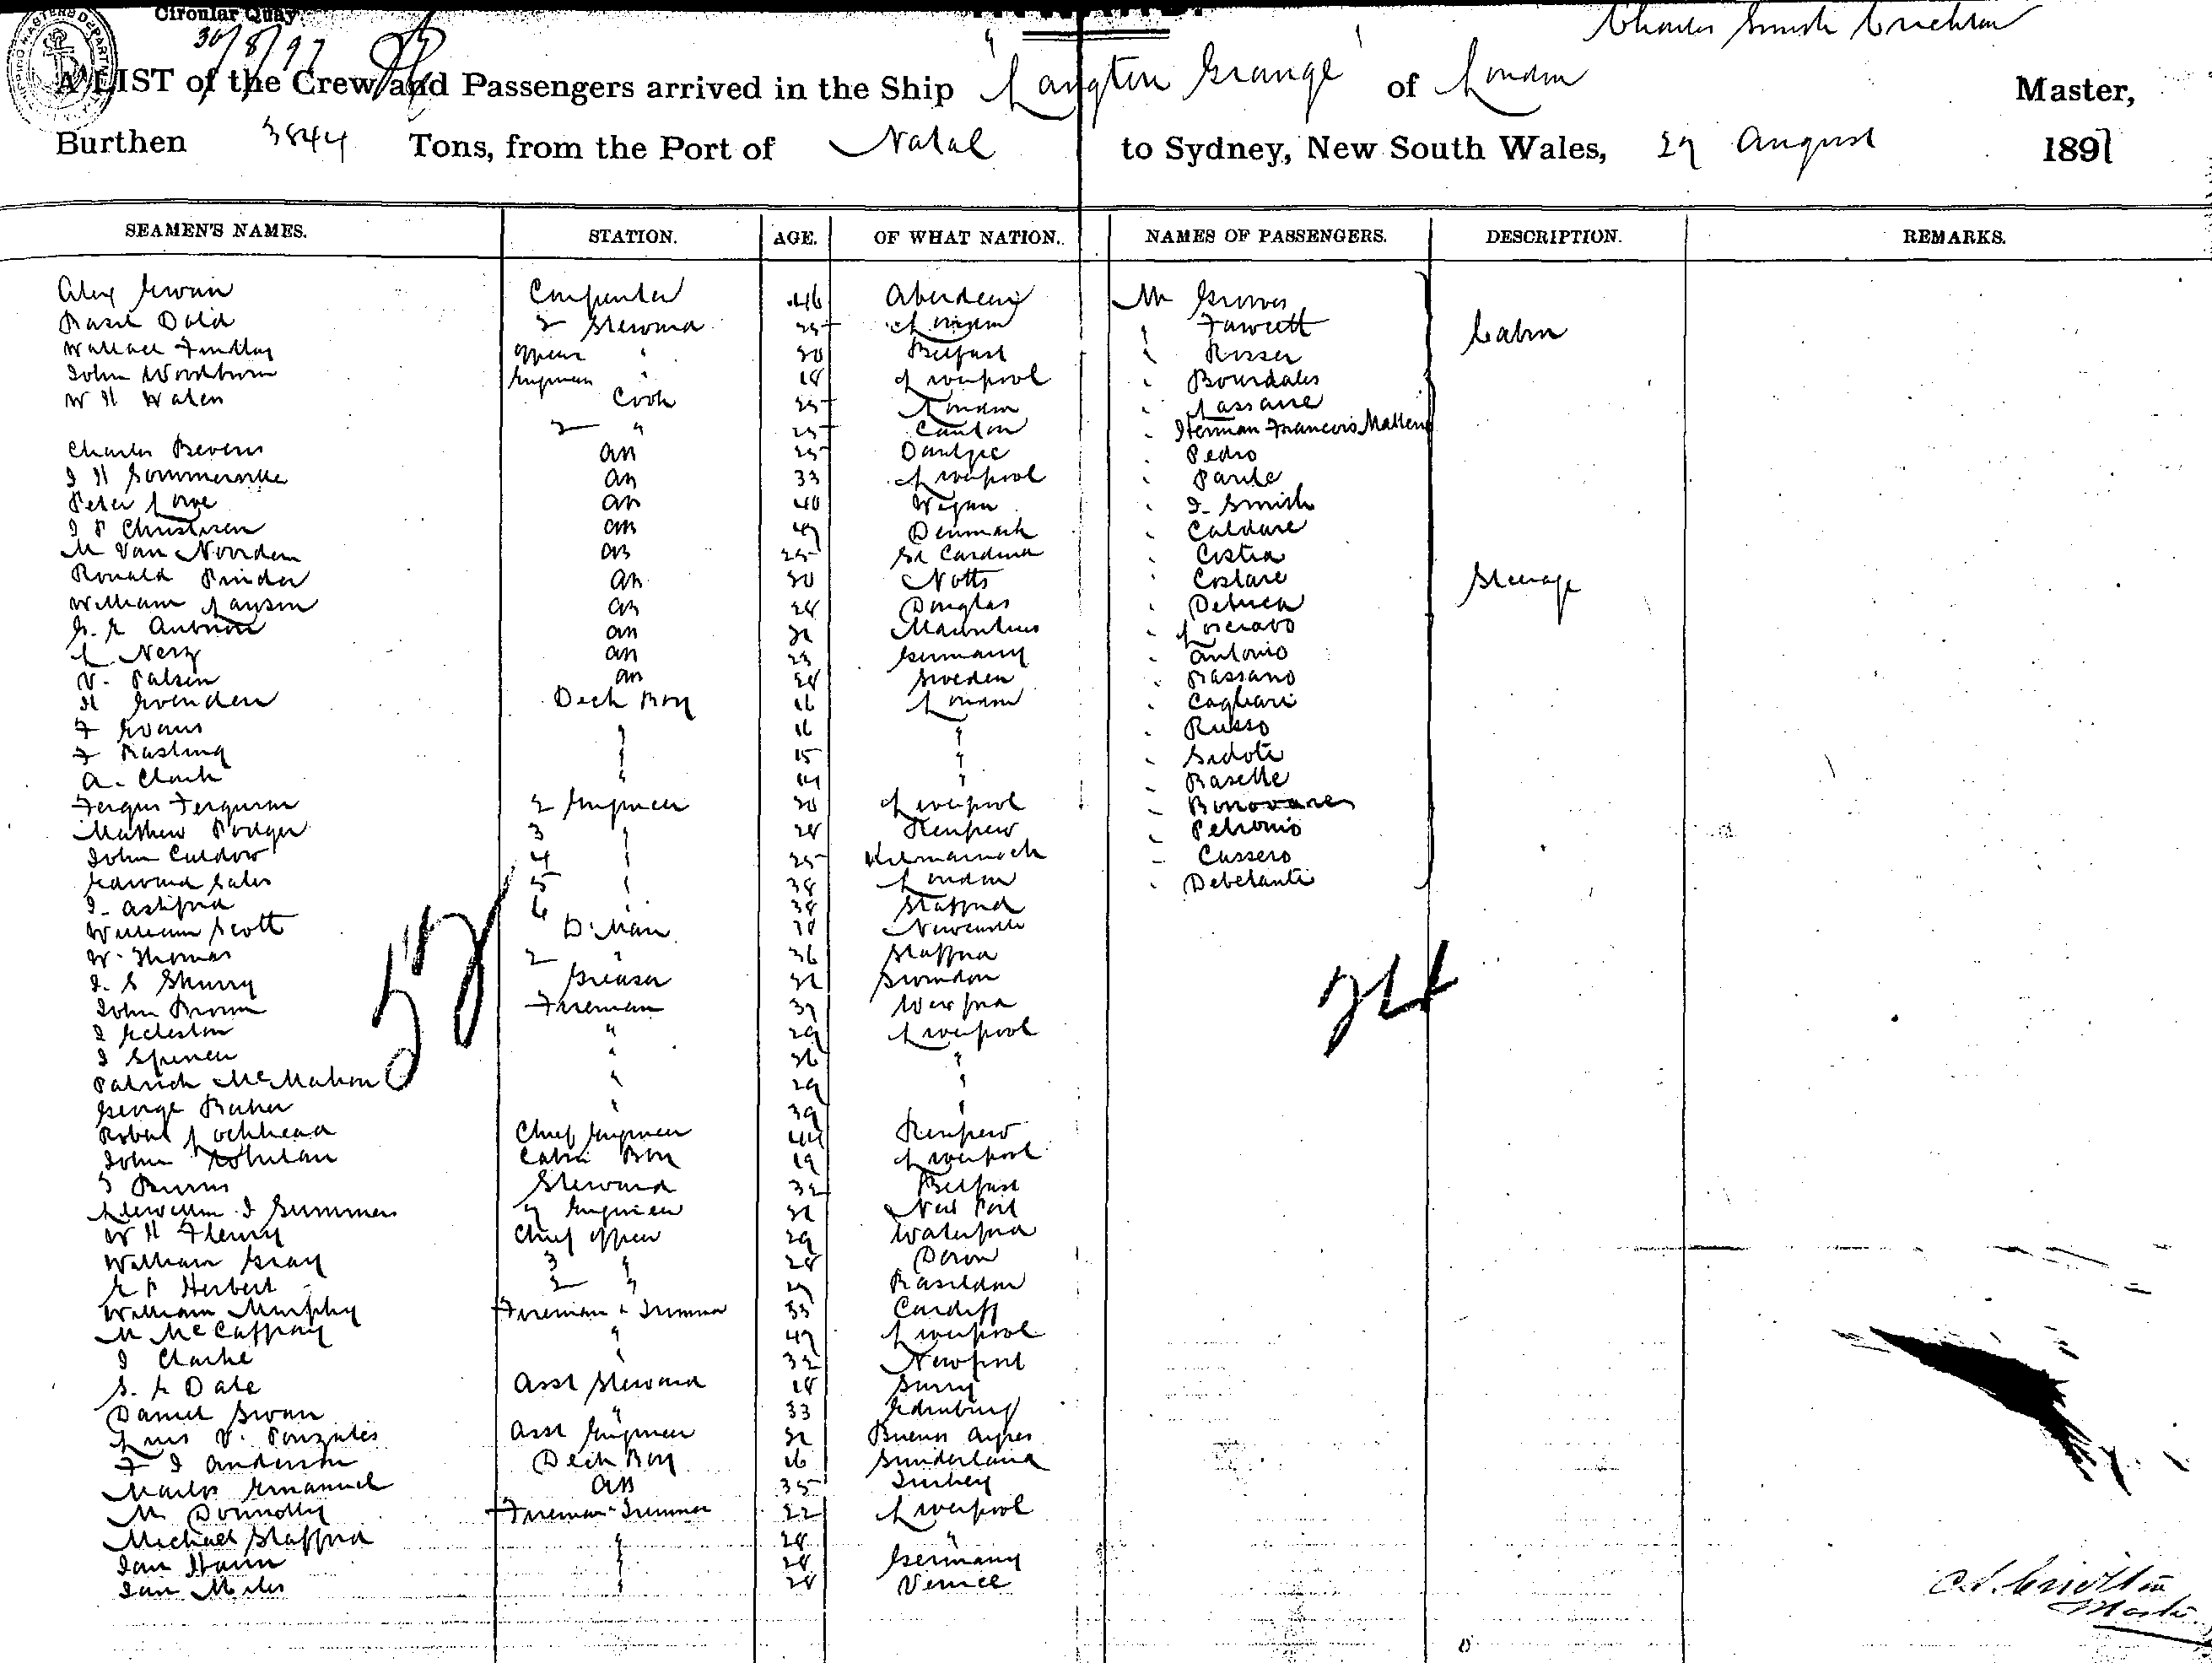 Circular Quay
30/8/97
Charles Smith Crichton
A LIST of the Crew and Passengers arrived in the Ship "Langton Grange" of London Master,
Burthen 3844 Tons, from the Port of Natal to Sydney, New South Wales, 29 August 1897
SEAMEN'S NAMES. STATION. AGE. OF WHAT NATION. NAMES OF PASSENGERS. DESCRIPTION. REMARKS.
Alex Ewan Carpenter 46 Aberdeen Mr Groves
Basil Dold 2 Steward 25 London " Fawcett Cabin
Wallace Findlay Officers " 30 Belfast " Rosser
John Woodburn Engineers " 18 Liverpool " Bourdales
W H Walen Cook 25 London " Lassane
2 " 25 Canton " Herman Francois Mallens
Charles Bevens AB 25 Dantzic " Pedro
J H Sommerville AB 33 Liverpool " Parite
Peter Lowe AB 40 Wigan " J. Smith
J P Christisen AB 47 Denmark " Caldare
M Van Noorden AB 25 " Costia
Ronald Pinder AB 30 Notts " Costare Steerage
William Lawson AB 28 Douglas " Deluca
AB 32 Mauritius " Losciavo
L Nerz AB 23 Germany " Antonio
V. Palsen AB 28 Sweden " Bassano
H Evenden Deck Boy 16 London " Cagliari
F Evans " 16 " " Russo
F Basting " 15 " " Sidoti
A. Clark " 14 " " Baselle
Fergus Ferguson 2 Engineer 30 Liverpool "
Mathew Podger 3 " 28 Renfrew " Petronio
John Curdow 4 " 25 Kilmarnock " Cussero
Edward Sales 5 " 38 London " Debelanti
J. Ashford 6 " 38 Stafford
William Scott D. Man Newcastle
W. Thomas 2 " 36 Stafford
J. S Skurry Greaser 32 Swindon
John Brown Fireman 37 Wexford
J Ecleston " 29 Liverpool
J Spencer " 36 "
Patrick McMahon " 29 "
George Baker " 39 "
57 24
Robert Lochhead Chief Engineer 44 Renfrew
John Cabin Boy 19 Liverpool
J Burns Steward 32 Belfast
Llewellin J Summers 7 Engineer 32 New Port
W H Fleury Chief Officer 29 Waterford
William Gray 3 " 28 Devon
E P Herbert 2 " 27 Basildon
William Murphy Fireman & Trimmer 33 Cardiff
M McCaffray " 47 Liverpool
J Clarke " 32 Newport
S. E Date Asst Steward 18 Surry
Daniel Swan " 33 Edinburg
Luis V. Ponzales Asst Engineer 32 Buenos Ayres
F J Anderson Deck Boy 16 Sunderland
Marlos Emanuel AB 35 Turkey
M Donnolly Fireman & Trimmer 22 Liverpool
Michael Stafford " 28 "
Jan Hann " 28 Germany
Jan Miles " 28 Venice
C. S. Crichton
Master